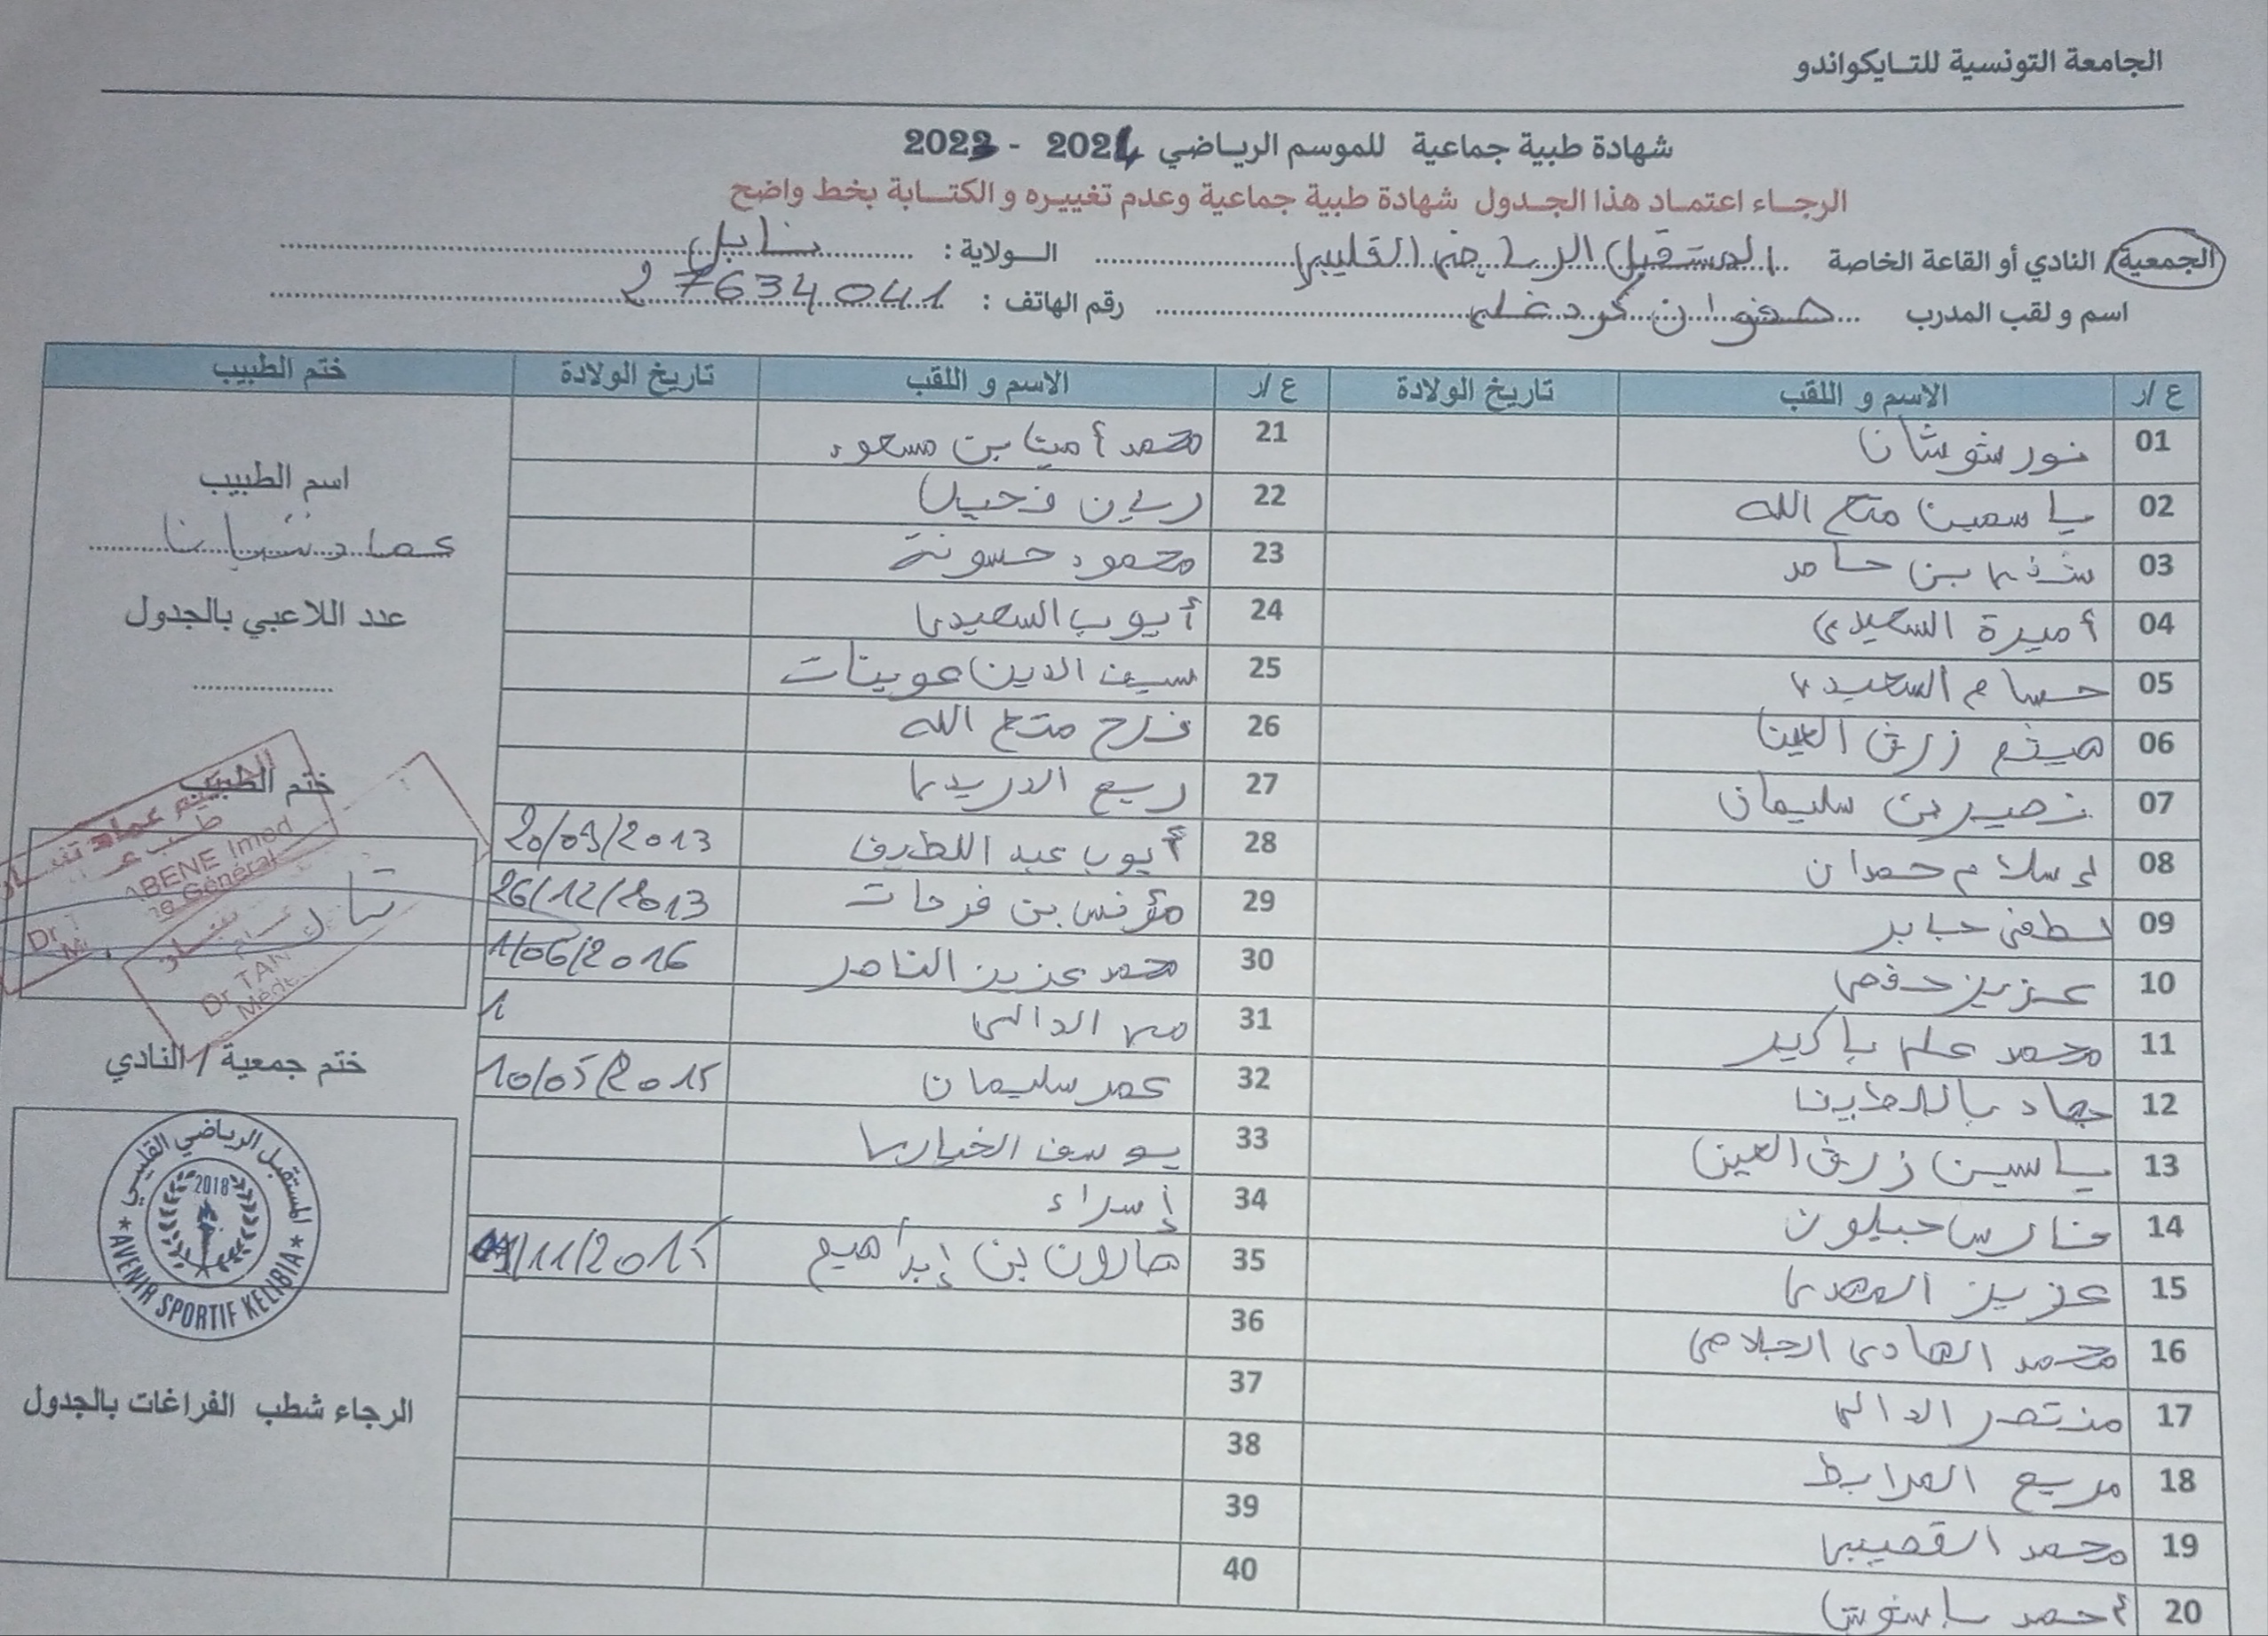 الجامعة التونسية للتايكواندو
شهادة طبية جماعية للموسم الرياضي 2024 - 2023
الرجاء اعتماد هذا الجدول شهادة طبية جماعية وعدم تغييره و الكتابة بخط واضح
الجمعية/ النادي أو القاعة الخاصة المستقبل الرياضي القليبي الولاية : نابل
اسم و لقب المدرب صفوان كردغلي رقم الهاتف : 27634041
ع /ر الاسم و اللقب تاريخ الولادة ع /ر الاسم و اللقب تاريخ الولادة ختم الطبيب
01 نور شوشان
02 ياسمين متع الله
03 بن حامد
04 أميرة السعيدي
05 حسام السعيدي
06 هيثم زرق العين
07 نصير بن سليمان
08 إسلام حمدان
09 لطفي جابر
10 عزيز حفصي
11 محمد علي باكير
12 جهاد
13 ياسين زرق العين
14 فارس جبلون
15 عزيز المهدي
16 محمد الهادي الجلاصي
17 منتصر الدالي
18 مريم المرابط
19 محمد القصيبي
20 أحمد
21 محمد أمين بن مسعود
22
23 محمود حسونة
24 أيوب السعيدي
25 سيف الدين عوينات
26 فرح متع الله
27 ربيع الدريدي
28 أيوب عبد اللطيف 20/09/2013
29 مؤنس بن فرحات 26/12/2013
30 محمد عزيز الناصر 1/06/2016
31 الدالي 1
32 عمر سليمان 10/05/2015
33 يوسف الخياري
34 إسراء
35 هارون بن إبراهيم /11/2015
36
37
38
39
40
اسم الطبيب
عماد
عدد اللاعبي بالجدول
ختم الطبيب
الحكيم عماد
ABENE Imed
Dr
Dr TAN
ختم جمعية / النادي
المستقبل الرياضي القليبي
2018
* AVENIR SPORTIF KELIBIA *
الرجاء شطب الفراغات بالجدول